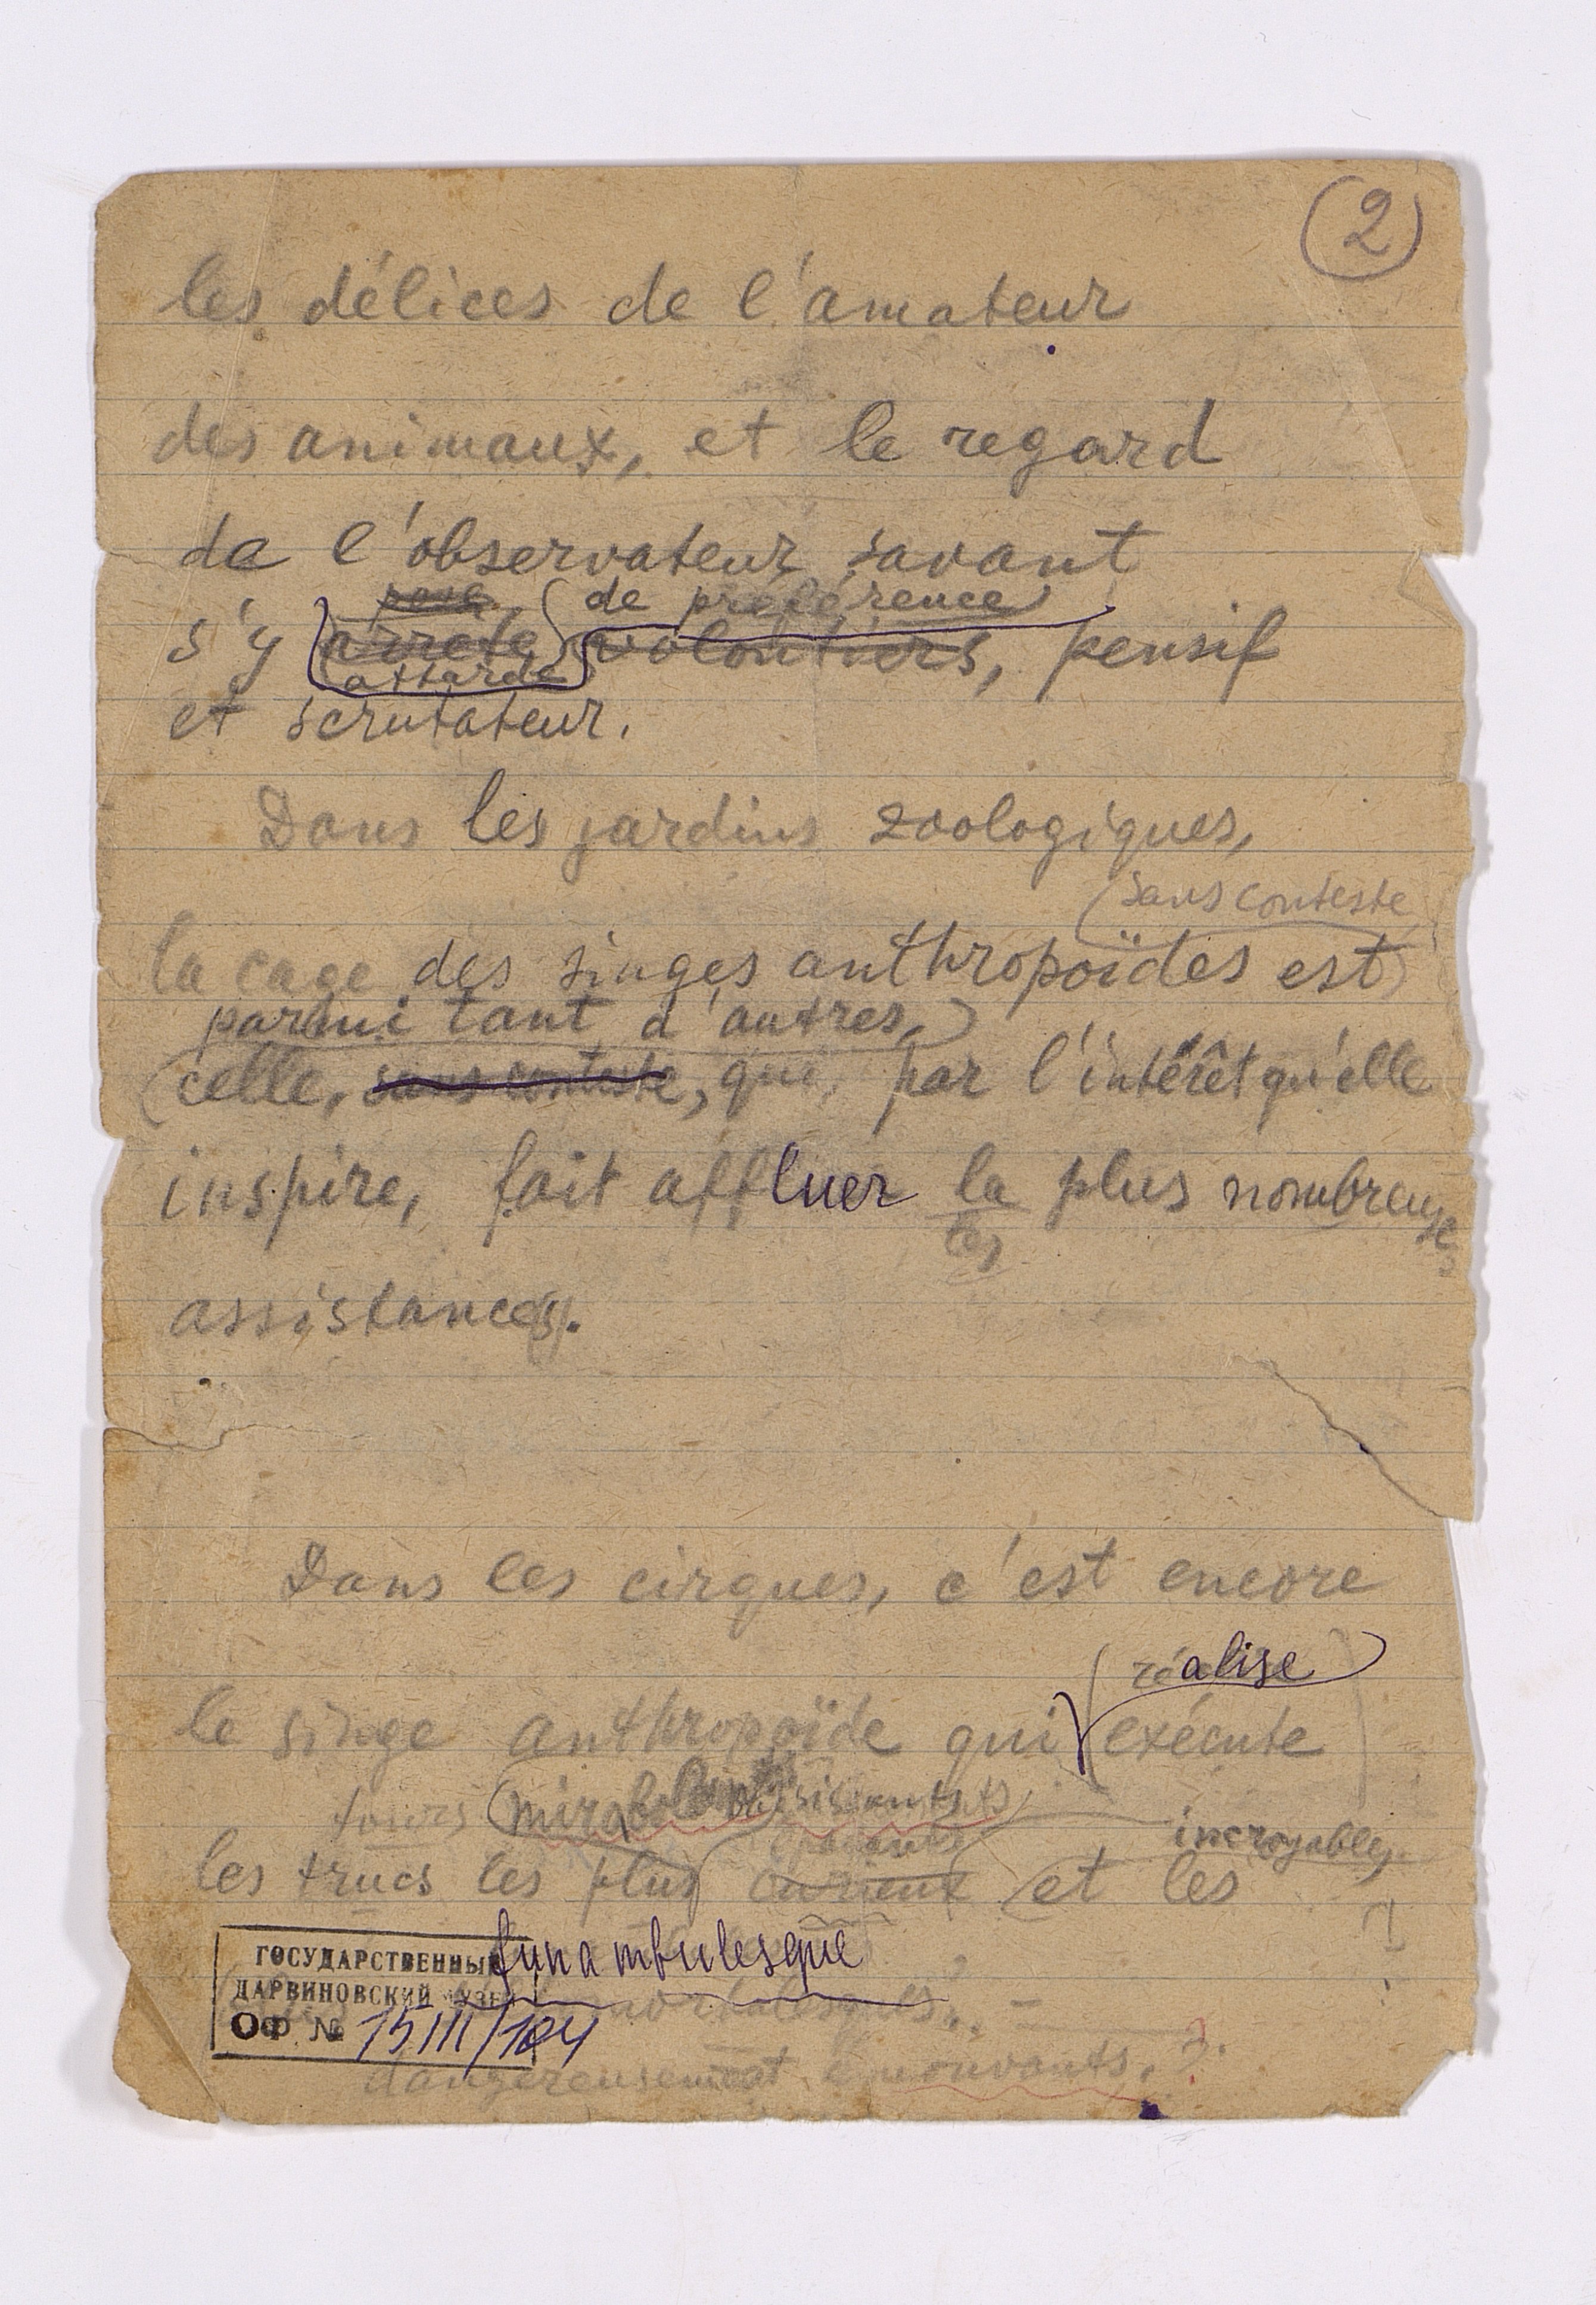 2
les délices de l'amateur
des animaux, et le regard
de l'observateur savant
pose de préférence
s'y arrête volontiers, pensif
attarde
et scrutateur.
Dans les jardins zoologiques,
sans conteste
la cage des singes anthropoïdes est
parmi tant d'autres,
celle, sans conteste, qui, par l'intérêt qu'elle
inspire, fait affluer la plus nombreuse
les s
assistance(s).
Dans les cirques, c'est encore
réalise
le singe anthropoïde qui exécute
tours
épatants incroyables
les trucs les plus curieux et les
funambulesque
ГОСУДАРСТВЕННЫЙ
ДАРВИНОВСКИЙ МУЗЕЙ
ОФ № 15111/104
dangereusement émouvants. ?